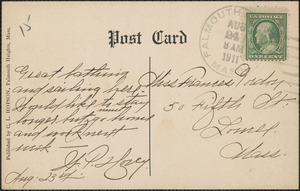 15
Post Card
FALMOUTH
AUG
24
8 AM
1911
MASS
Published by G. L. HOPSON, Falmouth Heights, Mass.
Great bathing
and sailing here
Would like to stay
longer but go home
and work next
week
Aug. 23rd
Miss Frances
50 Fifth St.
Lowell
Mass.